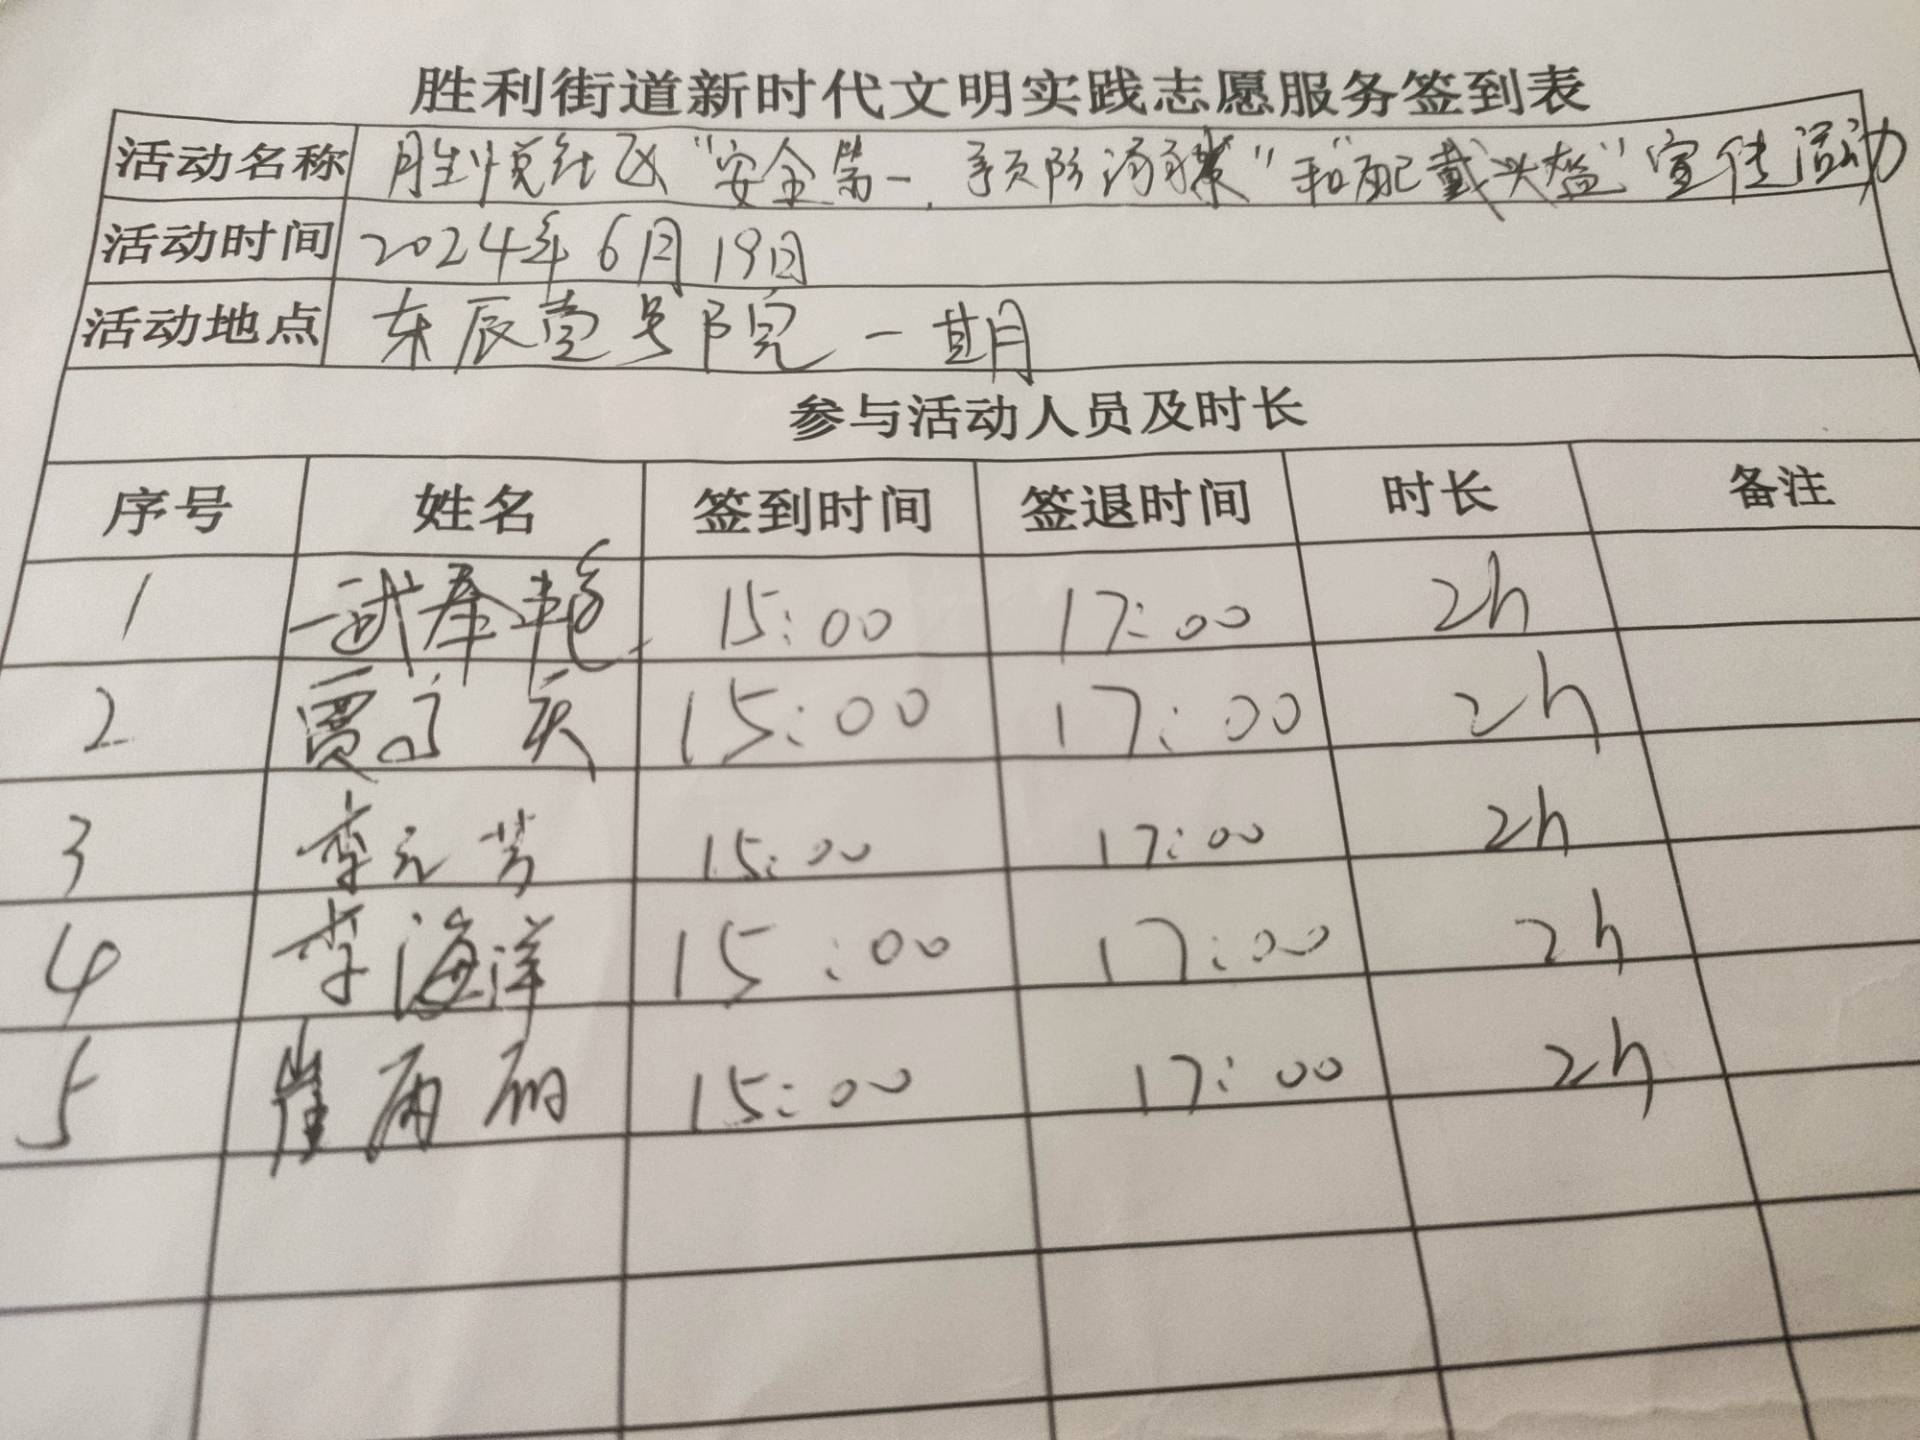 胜利街道新时代文明实践志愿服务签到表
活动名称 胜悦社区“安全第一，预防溺水”和“配戴头盔”宣传活动
活动时间 2024年6月19日
活动地点 东辰壹号院一期
参与活动人员及时长
序号 姓名 签到时间 签退时间 时长 备注
1 武春艳 15:00 17:00 2h
2 贾 庆 15:00 17:00 2h
3 李元芳 15:00 17:00 2h
4 李海洋 15:00 17:00 2h
5 崔雨 15:00 17:00 2h